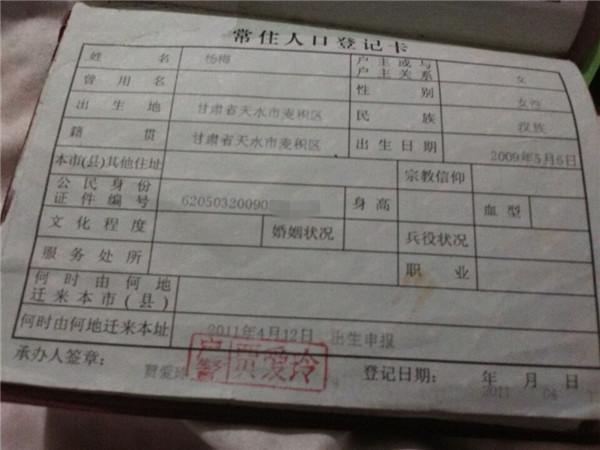 常住人口登记卡
姓名 杨梅 户主或与户主关系 女
曾用名 性别 女性
出生地 甘肃省天水市麦积区 民族 汉族
籍贯 甘肃省天水市麦积区 出生日期 2009年5月6日
本市(县)其他住址 宗教信仰
公民身份证件编号 62050320090 身高 血型
文化程度 婚姻状况 兵役状况
服务处所 职业
何时由何地迁来本市(县)
何时由何地迁来本址 2011年4月12日 出生申报
承办人签章: 贾爱玲 户警 贾爱玲 登记日期: 年 月 日
2011 04